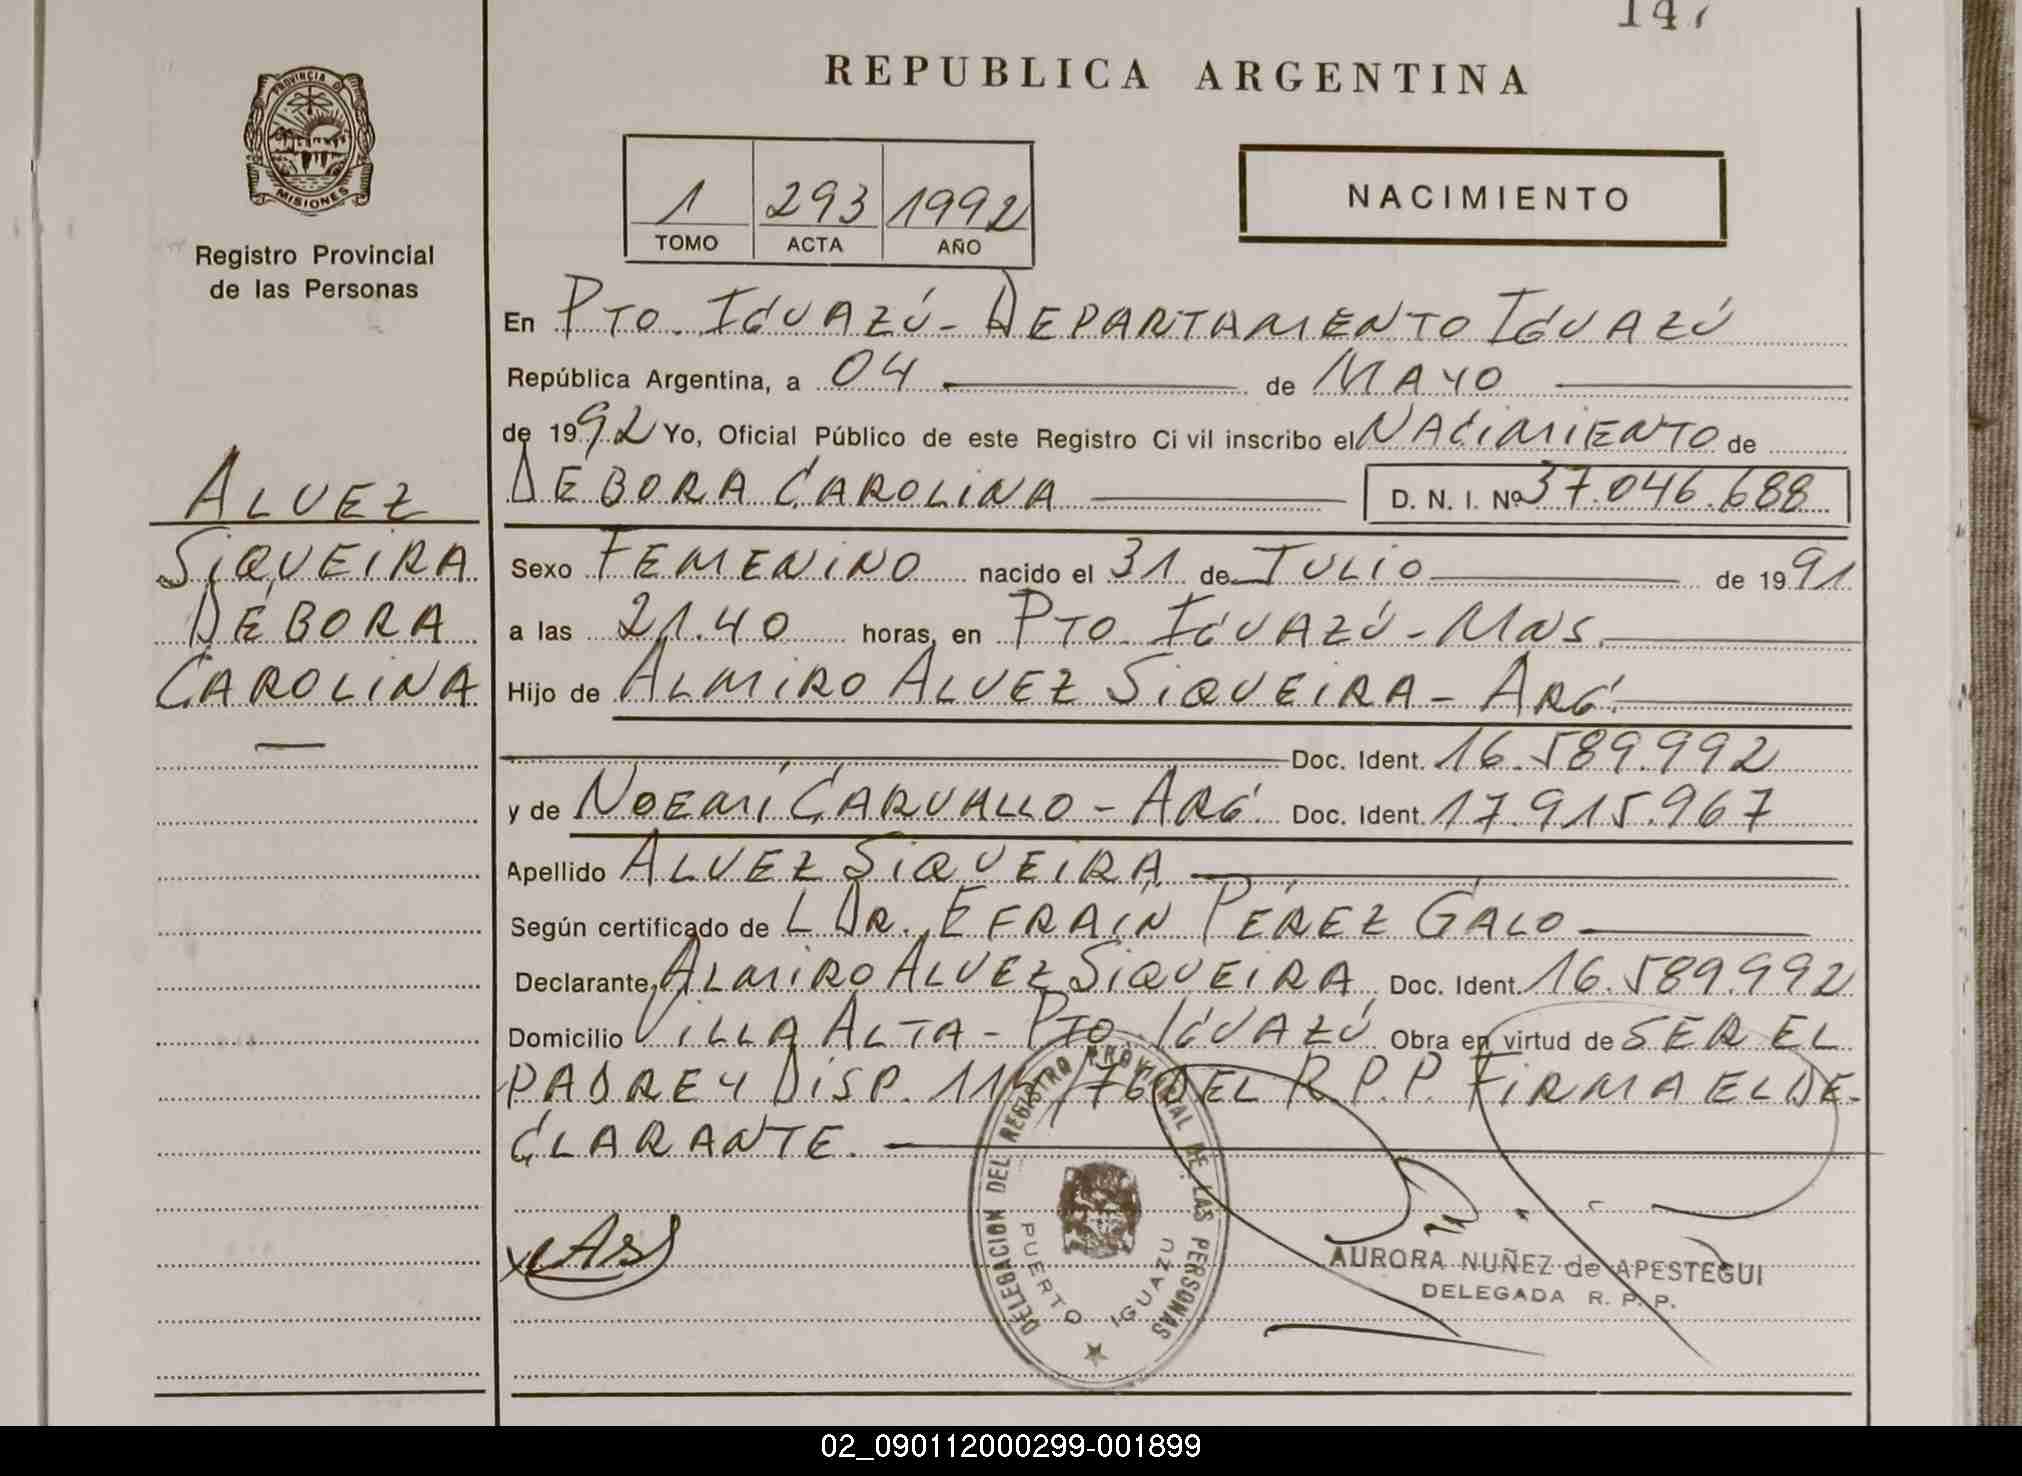 147
REPUBLICA ARGENTINA
PROVINCIA DE
MISIONES
Registro Provincial
de las Personas
1 293 1992
TOMO ACTA AÑO
NACIMIENTO
En PTO. IGUAZÚ - DEPARTAMENTO IGUAZÚ
República Argentina, a 04 de MAYO
de 1992 Yo, Oficial Público de este Registro Ci vil inscribo el NACIMIENTO de
DEBORA CAROLINA D. N. I. Nº 37.046.688
ALVEZ
SIQUEIRA
DEBORA
CAROLINA
Sexo FEMENINO nacido el 31 de JULIO de 1991
a las 21.40 horas, en PTO. IGUAZÚ - MNS.
Hijo de ALMIRO ALVEZ SIQUEIRA - ARG.
Doc. Ident. 16.589.992
y de NOEMÍ CARVALLO - ARG. Doc. Ident. 17.915.967
Apellido ALVEZ SIQUEIRA
Según certificado de L DR. EFRAÍN PÉREZ GALO
Declarante, ALMIRO ALVEZ SIQUEIRA Doc. Ident. 16.589.992
Domicilio VILLA ALTA - PTO IGUAZÚ Obra en virtud de SER EL
PADRE Y DISP. /76 DEL R.P.P. FIRMA EL DE-
CLARANTE.
DELEGACION DEL REGISTRO PROVINCIAL DE LAS PERSONAS
PUERTO IGUAZU
AURORA NUÑEZ de APESTEGUI
DELEGADA R. P. P.
02_090112000299-001899